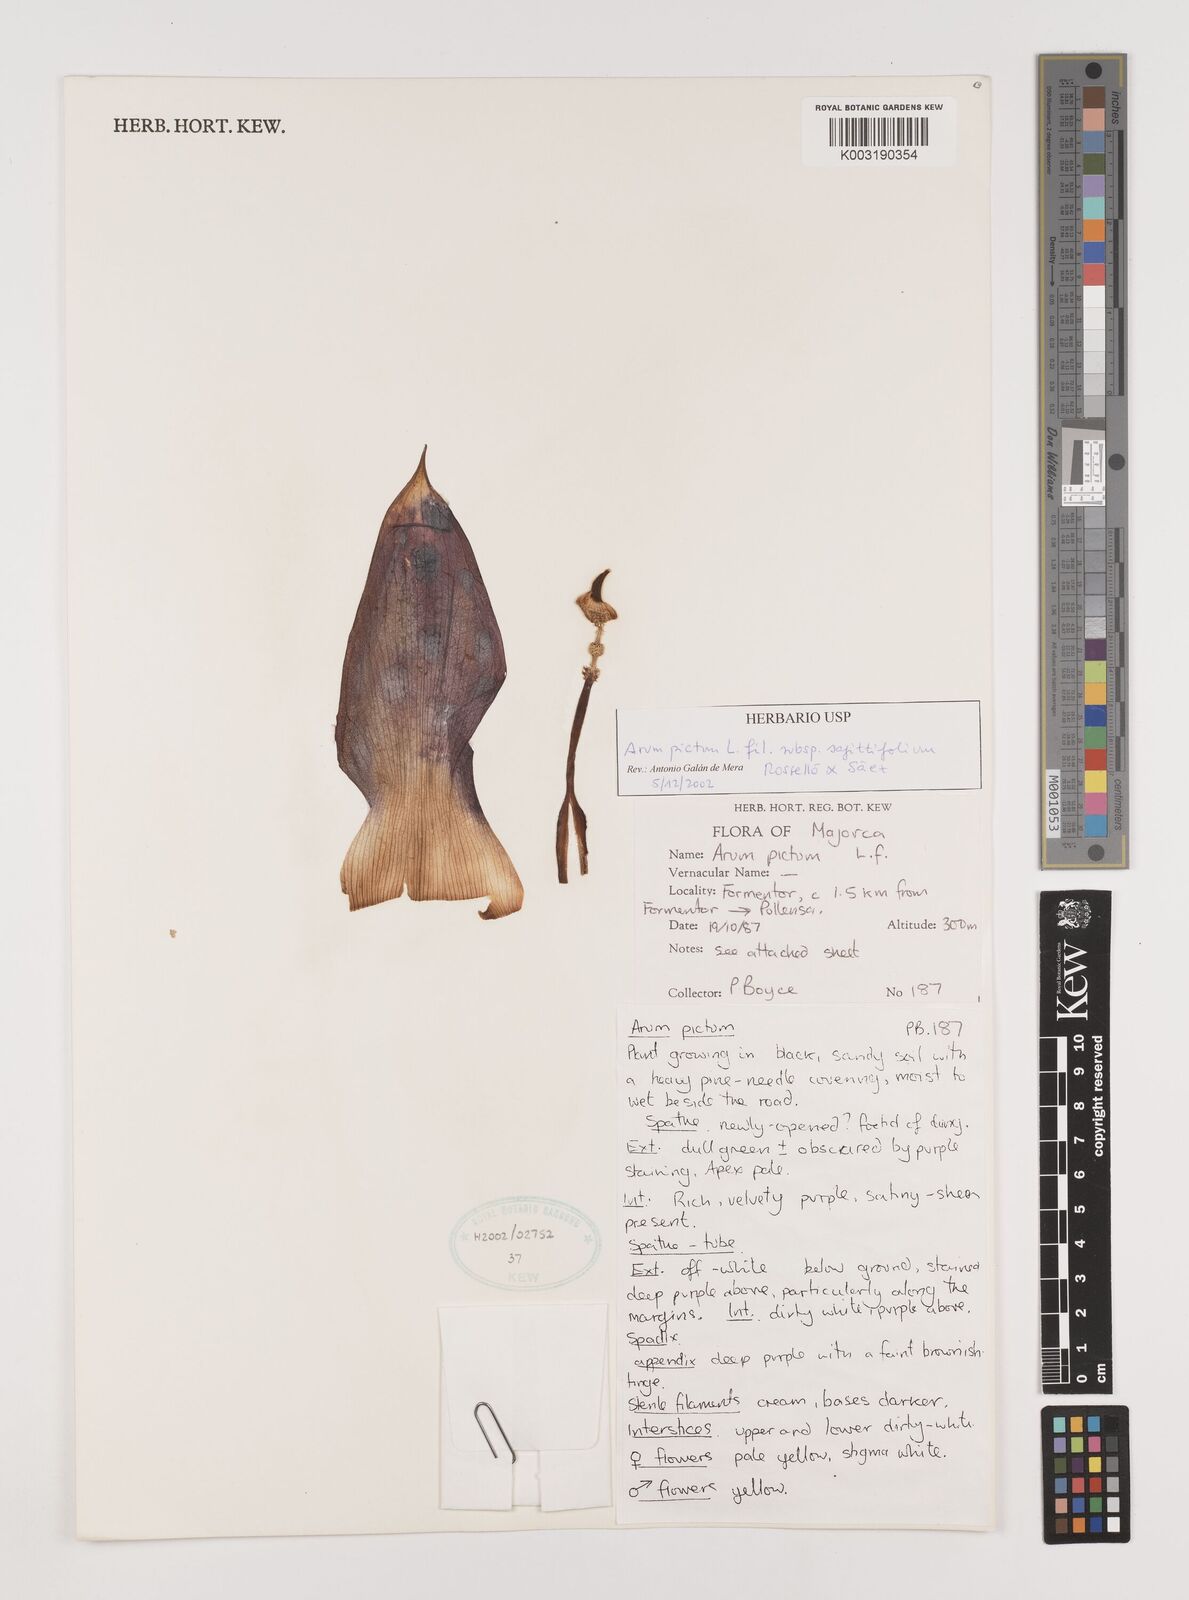 HERB. HORT. KEW.
ROYAL BOTANIC GARDENS KEW
K003190354
HERBARIO USP
Arum pictum L. fil. subsp. sagittifolium
Rosselló & Sáez
Rev.: Antonio Galán de Mera
5/12/2002
HERB. HORT. REG. BOT. KEW
FLORA OF Majorca
Name: Arum pictum L.f.
Vernacular Name: —
Locality: Formentor, c 1.5 km from
Formentor → Pollensa.
Date: 19/10/87 Altitude: 300m
Notes: see attached sheet
Collector: P Boyce No 187
Arum pictum PB.187
Plant growing in black, sandy soil with
a heavy pine-needle covering, moist to
wet beside the road.
Spathe newly-opened? foetid of dung.
Ext. dull green ± obscured by purple
staining, Apex pale.
Int. Rich, velvety purple, satiny-sheen
present.
Spathe-tube
Ext. off-white below ground, stained
deep purple above, particularly along the
margins. Int. dirty white, purple above.
Spadix
appendix deep purple with a faint brownish
tinge.
Sterile filaments cream, bases darker.
Interstices upper and lower dirty-white
♀ flowers pale yellow, stigma white.
♂ flowers yellow.
ROYAL BOTANIC GARDENS
H2002/02752
37
KEW
inches
centimeters
Don Williams
M001053
Density
Royal Botanic Gardens
Kew
0 1 2 3 4 5 6 7 8 9 10
cm
copyright reserved